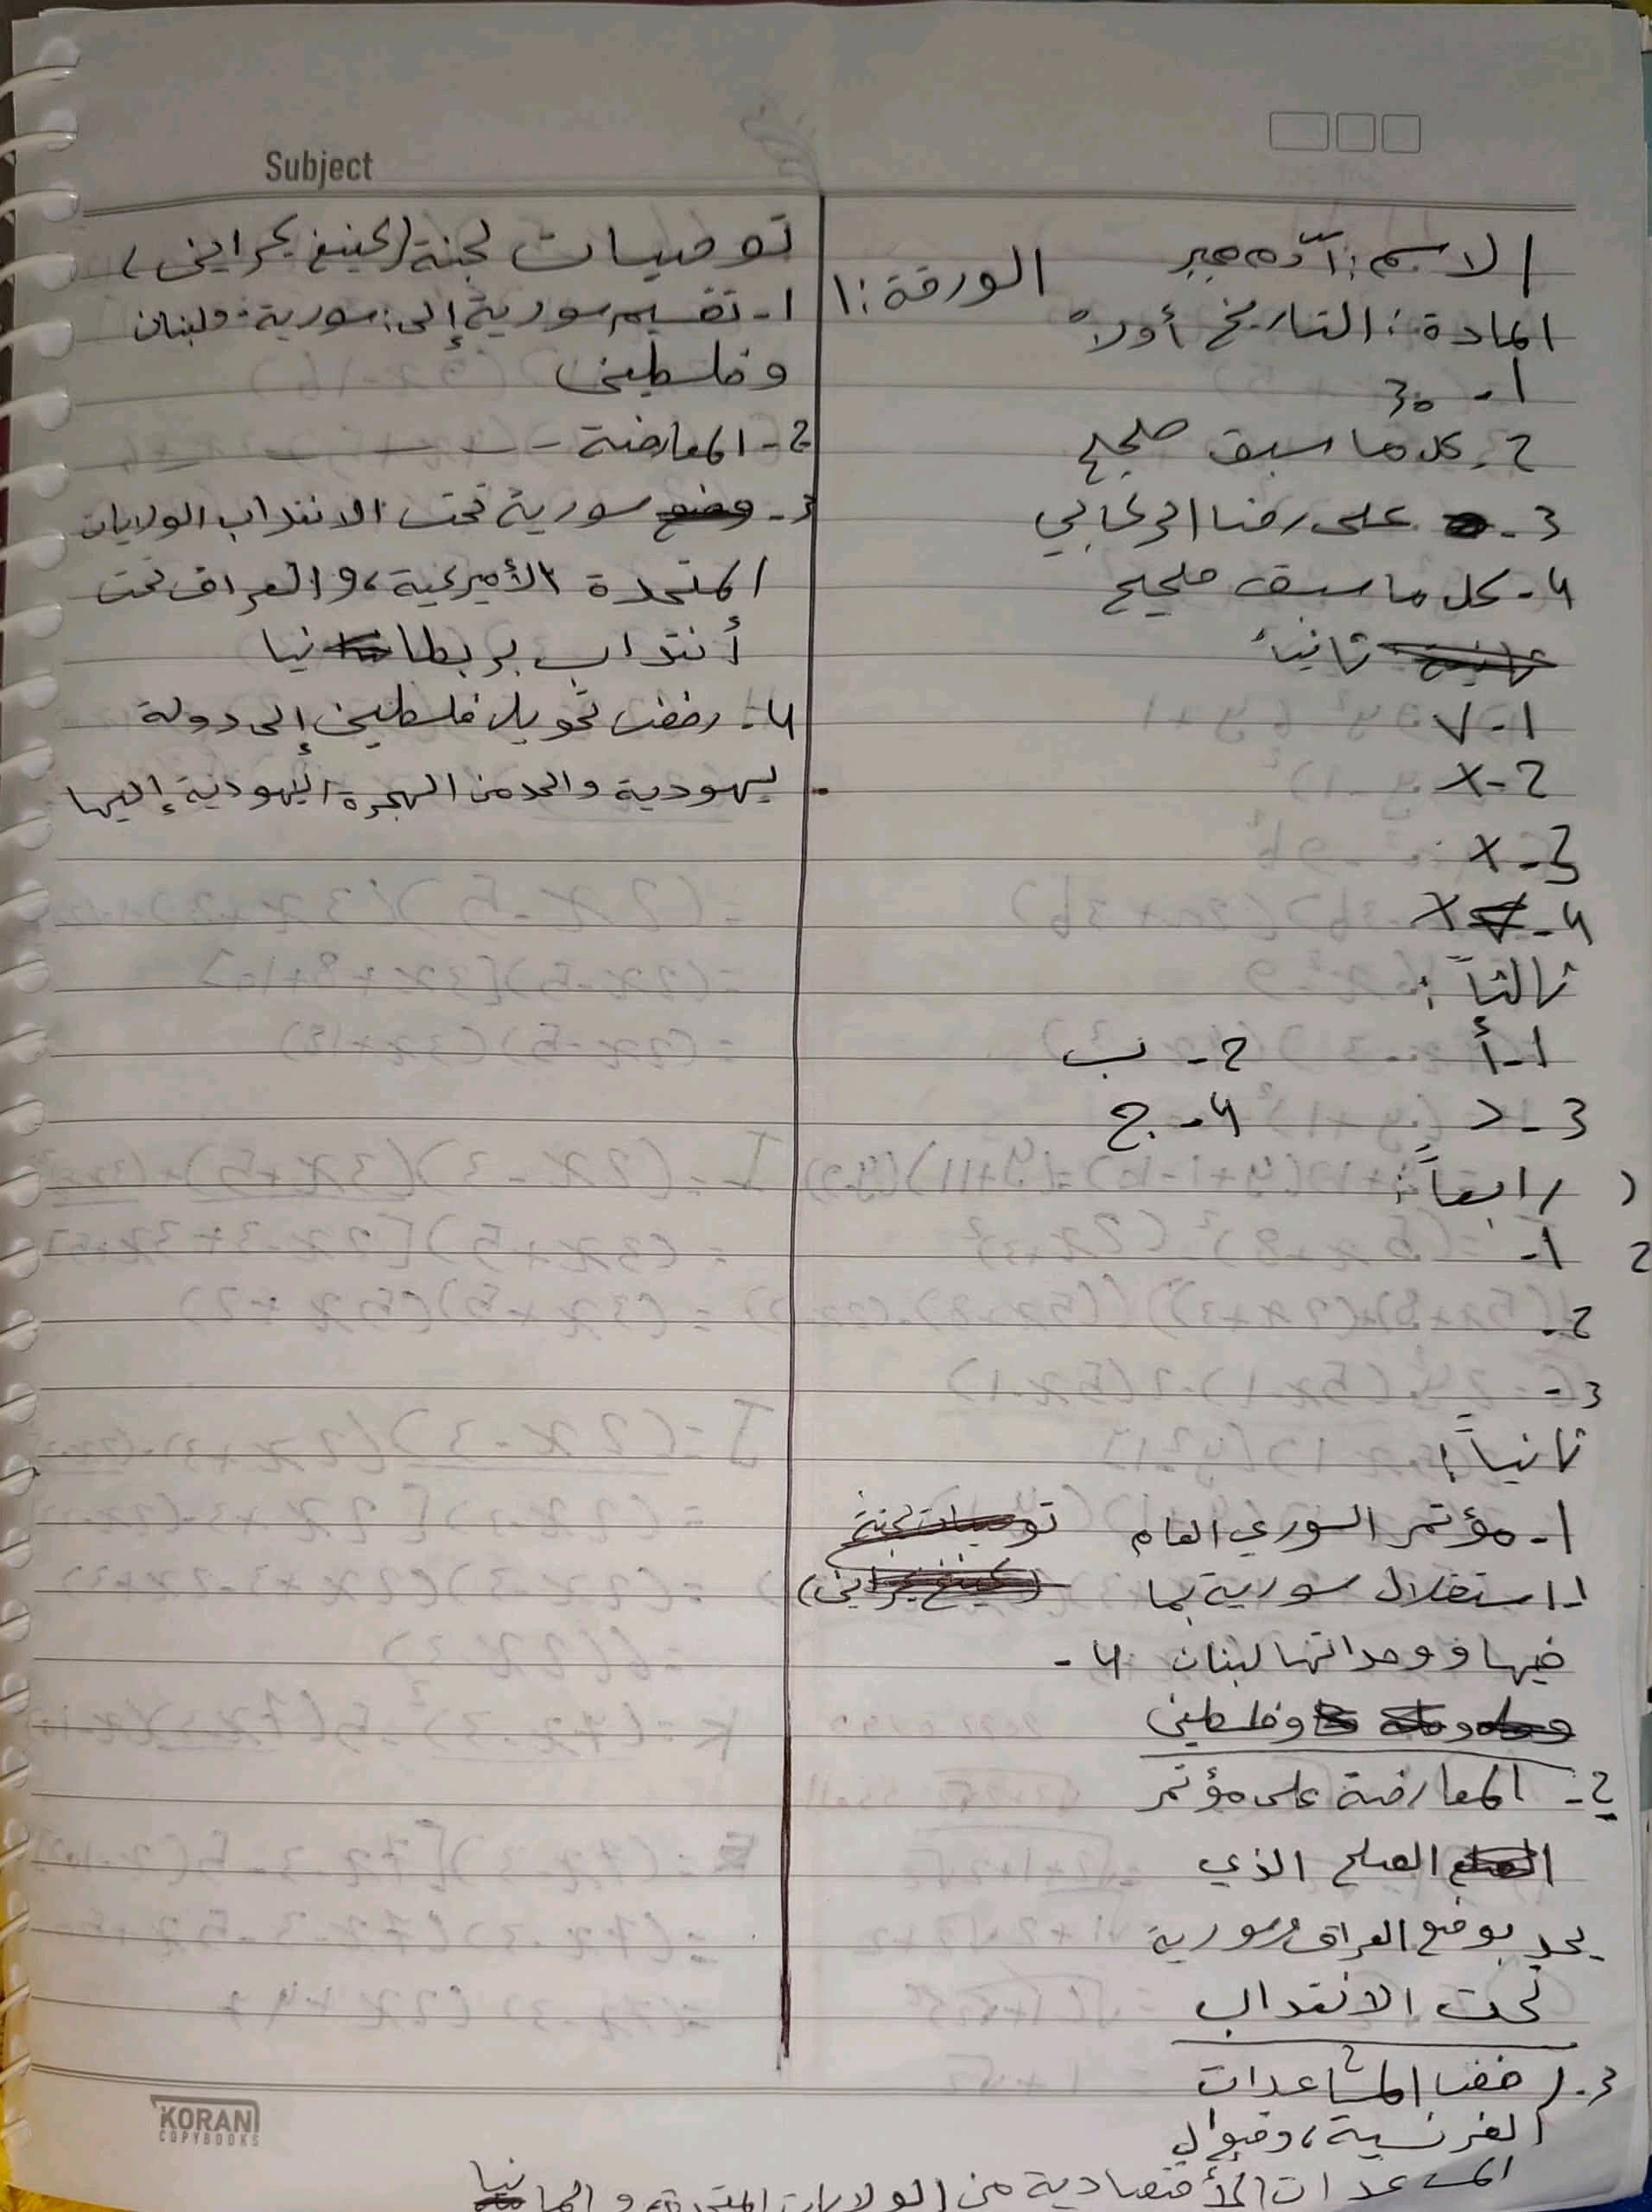 Subject
الاسم: آدم جبر
الورقة: ١
المادة: التاريخ أولاً
1- 30
2- كل ما سبق صحيح
3- علي رضا الركابي
4- كل ما سبق صحيح
ثانياً
1- √
2- X
3- X
4- X
ثالثاً:
1- أ 2- ب
3- د 4- ج
رابعاً:
1-
2-
3-
ثانياً:
1- مؤتمر السوري العام
1- استقلال سورية بما
فيها ووحداتها لبنان 4-
وفلسطين
2- المعارضة على مؤتمر
الصلح الذي
بوضع العراق وسورية
تحت الانتداب
3- رفض المساعدات
الفرنسية، وقبول
المساعدات الأقتصادية من الولايات المتحدة
توصيات لجنة (كينغ كراين)
1- تقسيم سورية إلى: سورية ولبنان
وفلسطين
2- المعارضة
3- وضع سورية تحت الانتداب الولايات
المتحدة الأميركية، والعراق تحت
أنتداب بريطانيا
4- رفضت تحويل فلسطين إلى دولة
يهودية والحد من الهجرة اليهودية إليها
KORANI
COPYBOOKS